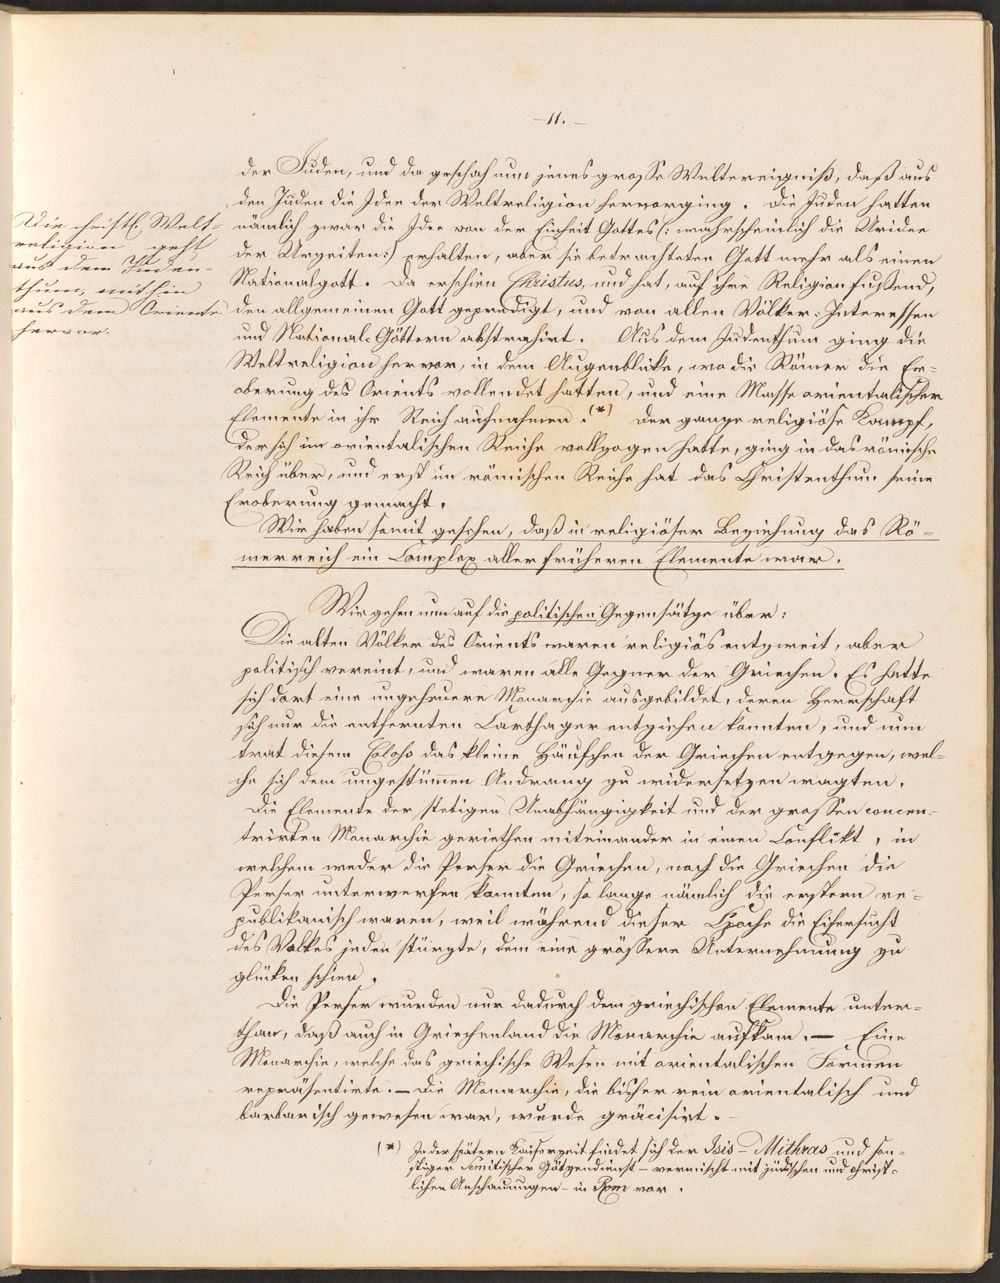 –11.–
der Juden, und da geschah nun jenes grosse Weltereigniß, daß aus
den Juden die Idee der Weltreligion hervorging. Die Juden hatten
nämlich zwar die Idee von der Einheit Gottes (: wahrscheinlich die Uridee
der Urzeiten:) erhalten, aber sie betrachteten Gott mehr als einen
Nationalgott. Da erschien Christus, und hat, auf ihre Religion fußend,
den allgemeinen Gott gepredigt, und von allen Völker-Interessen
und National-Göttern abstrahirt. Aus dem Judenthum ging die
Weltreligion hervor, in dem Augenblicke, wo die Römer die Er=
oberung des Orients vollendet hatten, und eine Masse orientalischer
Elemente in ihr Reich aufnahmen. (*) Der ganze religiöse Kampf,
der sich im orientalischen Reiche vollzogen hatte, ging in das römische
Reich über, und erst im römischen Reiche hat das Christenthum seine
Eroberung gemacht.
Wir haben somit gesehen, daß in religiöser Beziehung das Rö=
merreich ein Complex aller früheren Elemente war.
Die christl. Welt=
religion geht
aus dem Juden-
thum, mithin
aus dem Oriente
hervor.
Wir gehen nun auf die politischen Gegensätze über:
Die alten Völker des Orients waren religiös entzweit, aber
politisch vereint, und waren alle Gegner der Griechen. Es hatte
sich dort eine ungeheuere Monarchie ausgebildet, deren Herrschaft
sich nur die entfernten Carthager entziehen konnten, und nun
trat diesem Coloß das kleine Häufchen der Griechen entgegen, wel-
che sich dem ungestümen Andrang zu widersetzen wagten.
Die Elemente der stetigen Unabhängigkeit und der grossen concen-
trirten Monarchie geriethen miteinander in einen Conflikt, in
welchem weder die Perser die Griechen, noch die Griechen die
Perser unterwerfen konnten, so lange nämlich die erstern re-
publikanisch waren, weil während dieser Epoche die Eifersucht
des Volkes jeden stürzte, dem eine grössere Unternehmung zu
glücken schien.
Die Perser wurden nur dadurch dem griechischen Elemente unter-
than, daß auch in Griechenland die Monarchie aufkam. — Eine
Monarchie, welche das griechische Wesen mit orientalischen Formen
repräsentirte. — Die Monarchie, die bisher rein orientalisch und
barbarisch gewesen war, wurde gräcisirt.
(*) In der spätern Kaiserzeit findet sich der Isis- Mithras und son-
stiger semitischer Götzendienst – vermischt mit jüdischen und christ-
lichen Anschauungen – in Rom vor.